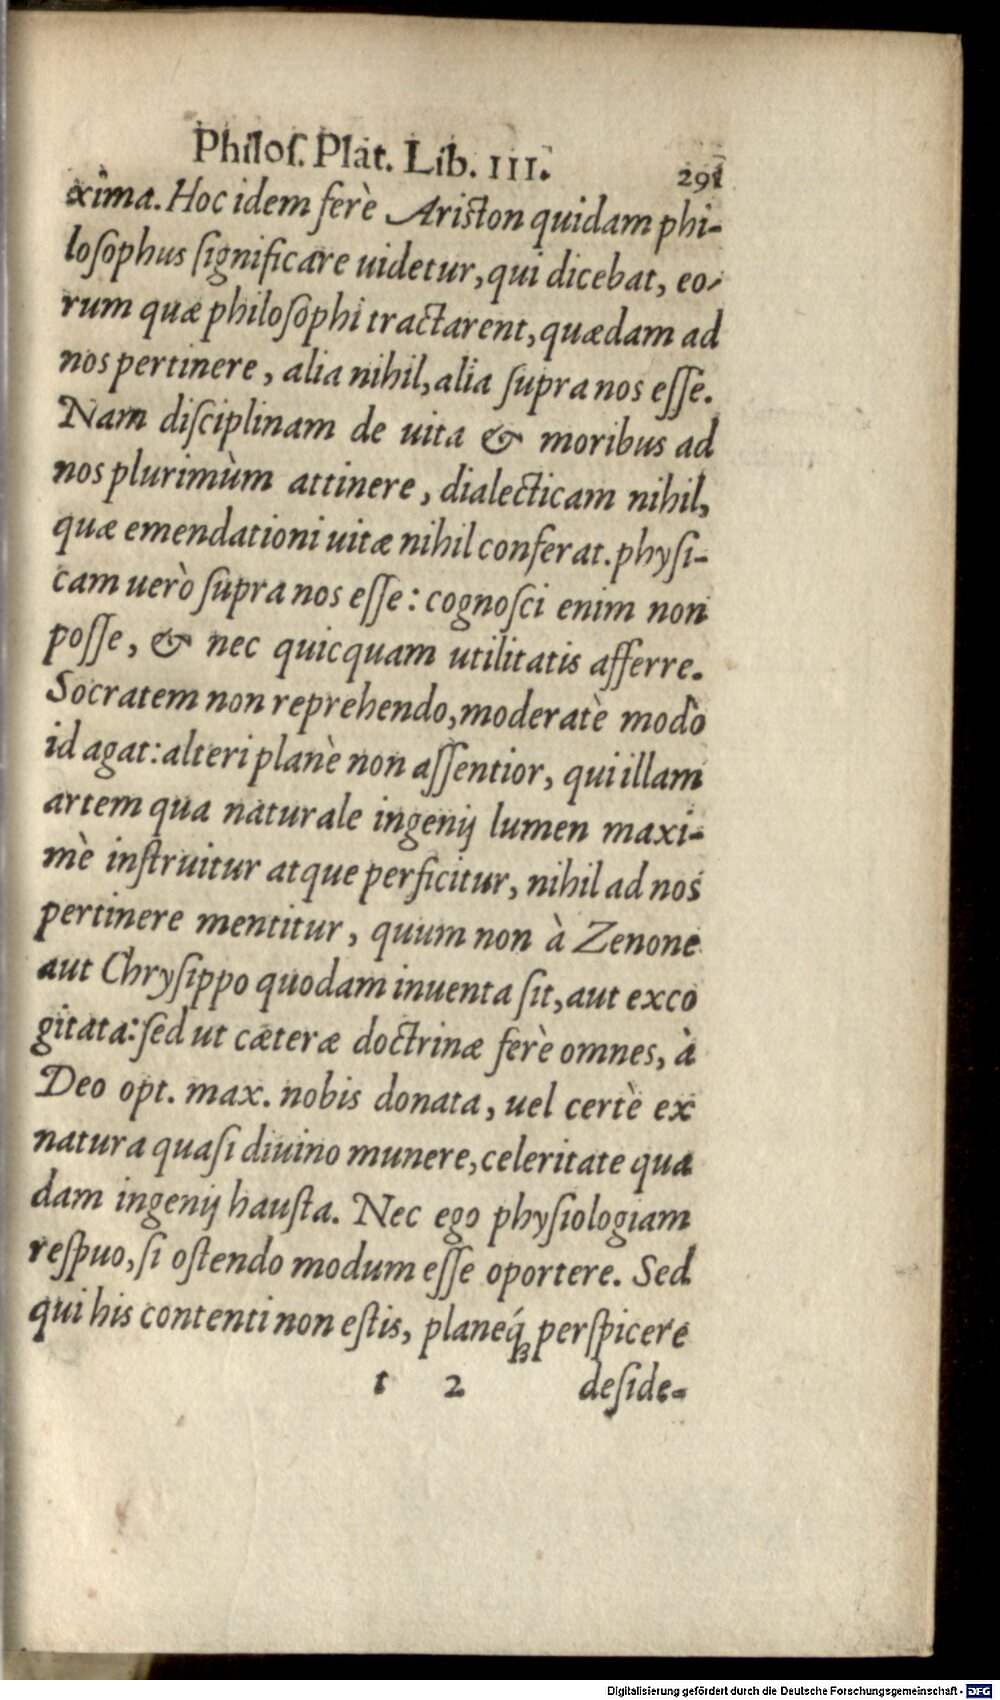 Philoſ. Plat. Lib. III. 291
xima. Hoc idem ferè Ariston quidam phi-
loſophus ſignificare uidetur, qui dicebat, eo-
rum quæ philoſophi tractarent, quædam ad
nos pertinere, alia nihil, alia ſupra nos eſſe.
Nam diſciplinam de uita & moribus ad
nos plurimùm attinere, dialecticam nihil,
quæ emendationi uitæ nihil conferat. phyſi-
cam uerò ſupra nos eſſe: cognoſci enim non
poſſe, & nec quicquam utilitatis afferre.
Socratem non reprehendo, moderatè modò
id agat: alteri planè non aſſentior, qui illam
artem qua naturale ingenij lumen maxi-
mè inſtruitur atque perficitur, nihil ad nos
pertinere mentitur, quum non à Zenone
aut Chryſippo quodam inuenta ſit, aut exco
gitata: ſed ut cæteræ doctrinæ ferè omnes, à
Deo opt. max. nobis donata, uel certè ex
natura quaſi diuino munere, celeritate qua
dam ingenij hauſta. Nec ego phyſiologiam
reſpuo, ſi oſtendo modum eſſe oportere. Sed
qui his contenti non eſtis, planeq́ꝫ perſpicere
t 2 deſide-
Digitalisierung gefördert durch die Deutsche Forschungsgemeinschaft - DFG